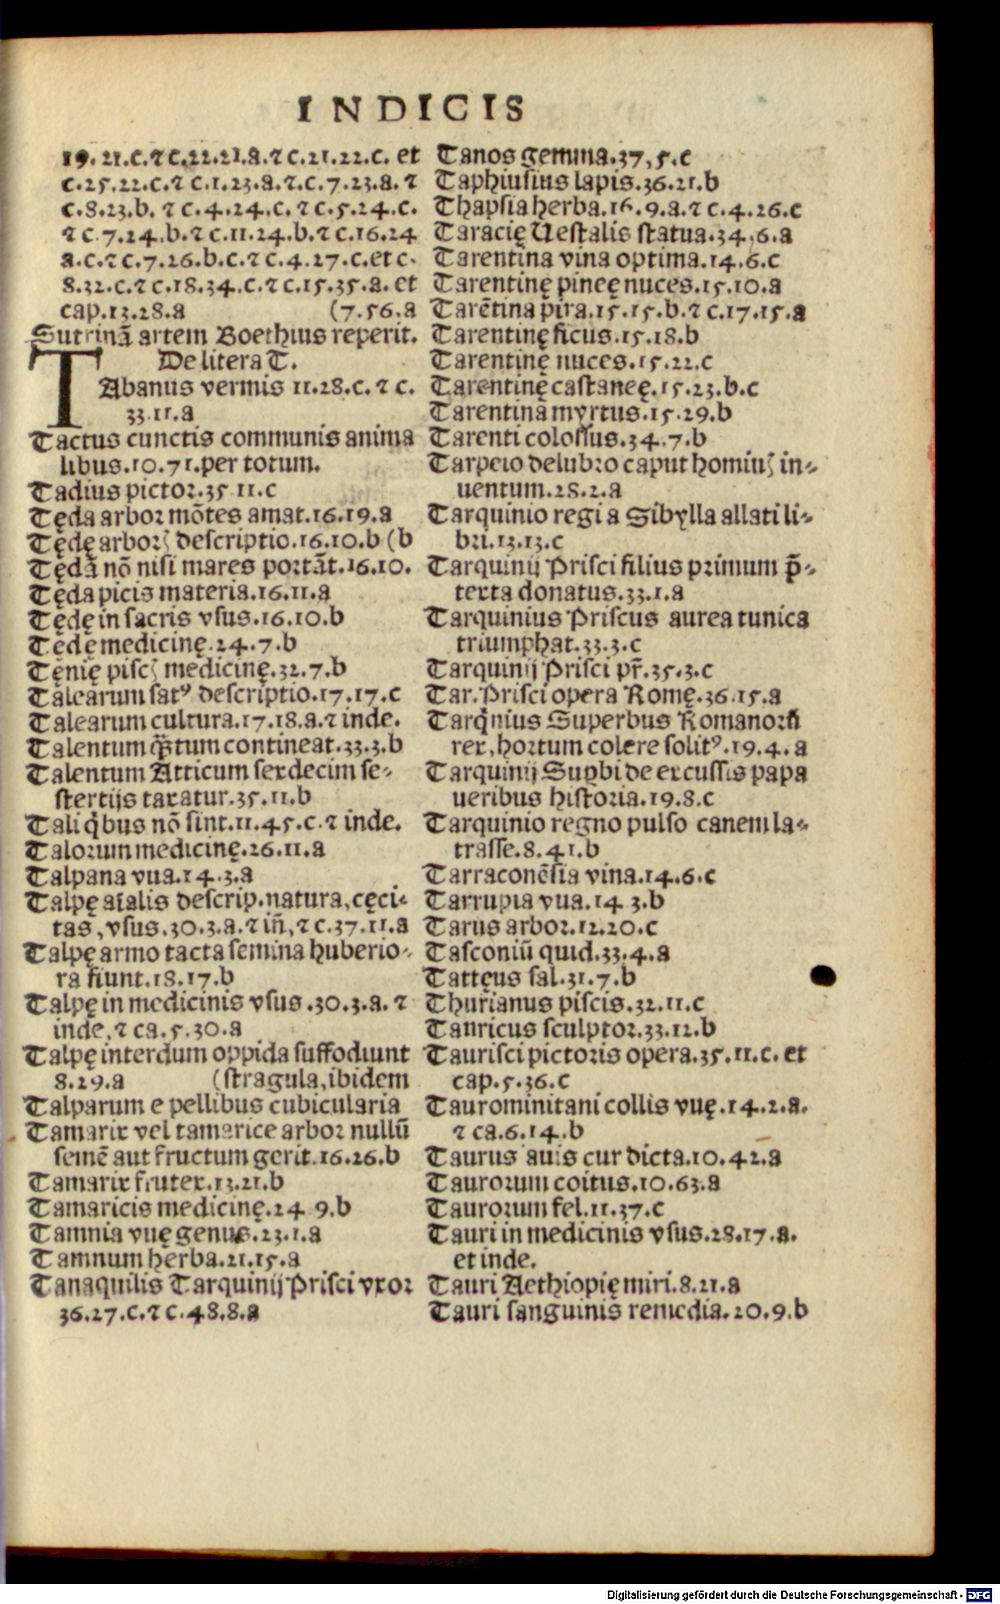 INDICIS
19.21.c.⁊ c.22.21.a.⁊ c.21.22.c. et
c.25.22.c.⁊ c.1.23.a.⁊.c.7.23.a.⁊
c.8.23.b.⁊ c.4.24.c.⁊ c.5.24.c.
⁊ c.7.24.b.⁊ c.11.24.b.⁊ c.16.24
a.c.⁊ c.7.26.b.c.⁊ c.4.27.c.et c.
8.32.c.⁊ c.18.34.c.⁊ c.15.35.a. et
cap.13.28.a (7.56.a
Sutrinā artem Boethius reperit.
De litera T.
TAbanus vermis 11.28.c.⁊ c.
33.11.a
Tactus cunctis communis anima
libus.10.71.per totum.
Tadius pictor.35 11.c
Tęda arbor mōtes amat.16.19.a
Tędę arborꝝ descriptio.16.10.b (b
Tędā nō nisi mares portāt.16.10.
Tęda picis materia.16.11.a
Tędę in sacris vsus.16.10.b
Tędę medicinę.24.7.b
Tęnię piscꝭ medicinę.32.7.b
Talearum satꝰ descriptio.17.17.c
Talearum cultura.17.18.a.⁊ inde.
Talentum q̄tum contineat.33.3.b
Talentum Atticum sexdecim se-
stertijs taxatur.35.11.b
Tali q̇bus nō sint.11.45.c.⁊ inde.
Talorum medicinę.26.11.a
Talpana vua.14.3.a
Talpę aīalis descrip.natura,cęci-
tas,vsus.30.3.a.⁊ iñ,⁊ c.37.11.a
Talpę armo tacta semina huberio-
ra fiunt.18.17.b
Talpę in medicinis vsus.30.3.a.⁊
inde,⁊ ca.5.30.a
Talpę interdum oppida suffodiunt
8.29.a (stragula,ibidem
Talparum e pellibus cubicularia
Tamarix vel tamarice arbor nullū
semē aut fructum gerit.16.26.b
Tamarix frutex.13.21.b
Tamaricis medicinę.24 9.b
Tamnia vuę genus.23.1.a
Tamnum herba.21.15.a
Tanaquilis Tarquinij Prisci vxor
36.27.c.⁊ c.48.8.a
Tanos gemma.37,5.c
Taphiusius lapis.36.21.b
Thapsia herba.16.9.a.⁊ c.4.26.c
Taracię Uestalis statua.34,6.a
Tarentina vina optima.14.6.c
Tarentinę pineę nuces.15.10.a
Tarētina pira.15.15.b.⁊ c.17.15.a
Tarentinę ficus.15.18.b
Tarentinę nuces.15.22.c
Tarentinę castaneę.15.23.b.c
Tarentina myrtus.15.29.b
Tarenti colossus.34.7.b
Tarpeio delubro caput homiuꝫ in-
uentum.28.2.a
Tarquinio regi a Sibylla allati li-
bri.13.13.c
Tarquinij Prisci filius primum p̄-
texta donatus.33.1.a
Tarquinius Priscus aurea tunica
triumphat.33.3.c
Tarquinij Prisci pr̄.35.3.c
Tar.Prisci opera Romę.36.15.a
Tarq̇nius Superbus Romanorū
rex,hortum colere solitꝰ.19.4.a
Tarquinij Suꝑbi de excussis papa
ueribus historia.19.8.c
Tarquinio regno pulso canem la-
trasse.8.41.b
Tarraconēsia vina.14.6.c
Tarrupia vua.14 3.b
Tarus arbor.12.20.c
Tasconiū quid.33.4.a
Tattęus sal.31.7.b
Thurianus piscis.32.11.c
Tauricus sculptor.33.12.b
Taurisci pictoris opera.35.11.c. et
cap.5.36.c
Taurominitani collis vuę.14.2.a.
⁊ ca.6.14.b
Taurus auis cur dicta.10.42.a
Taurorum coitus.10.63.a
Taurorum fel.11.37.c
Tauri in medicinis vsus.28.17.a.
et inde.
Tauri Aethiopię miri.8.21.a
Tauri sanguinis remedia.20.9.b
Digitalisierung gefördert durch die Deutsche Forschungsgemeinschaft - DFG